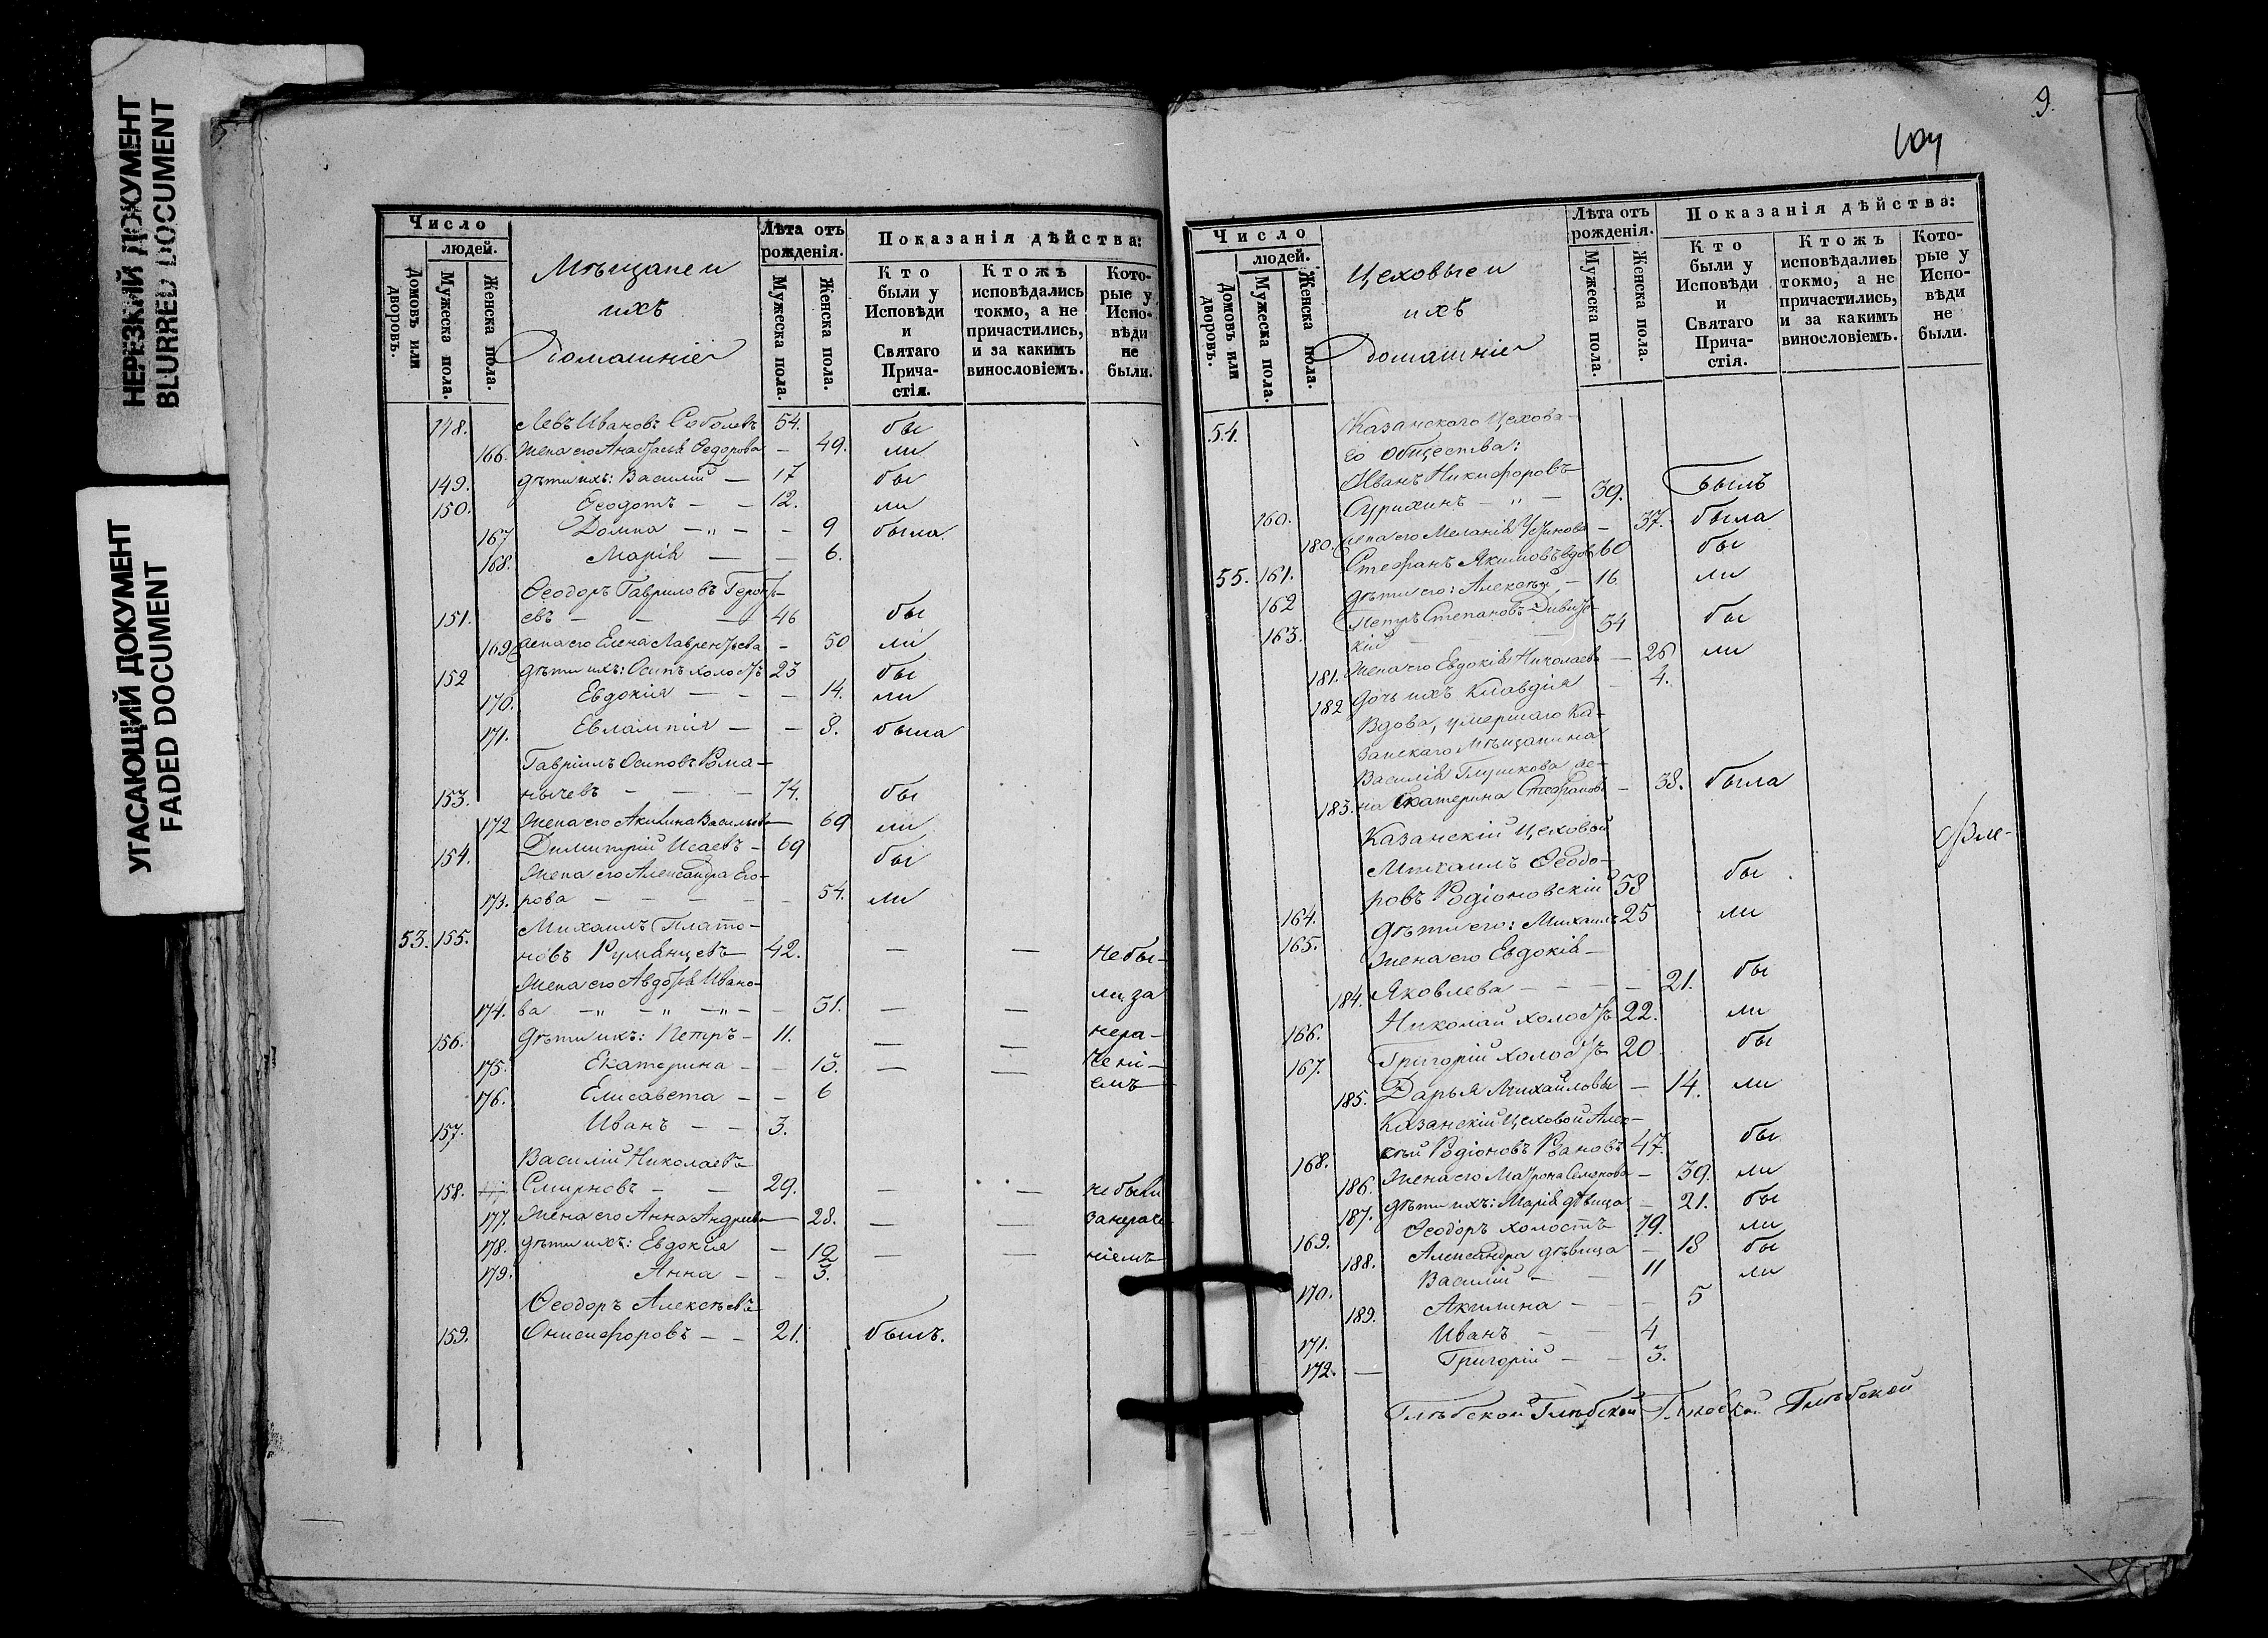 НЕРЕЗКИЙ ДОКУМЕНТ
BLURRED DOCUMENT
УГАСАЮЩИЙ ДОКУМЕНТ
FADED DOCUMENT
Число
людей.
Домовъ или дворовъ.
Мужеска пола.
Женска пола.
Мѣщане и
ихъ
Домашніе
Лѣта отъ рожденія.
Мужеска пола.
Женска пола.
Показанія дѣйства:
Кто были у Исповѣди и Святаго Причастія.
Ктожъ исповѣдались токмо, а не причастились, и за какимъ винословіемъ.
Которые у Исповѣди не были.
148. Левъ Ивановъ Соболевъ 54. бы
166. Жена его Анастасія Ѳедорова — 49. ли
149. Дѣти их: Василій — 17 бы
150. Ѳеодотъ — — 12. ли
167 Домна — „ — — 9 была
168. Марія — — 6.
Ѳеодоръ Гавриловъ Геронть-
151. евъ — — — 46 бы
169 Жена его Елена Лаврентьева — 50 ли
152 Дѣти ихъ: Осипъ холостъ 23 бы
170. Евдокія — — — 14. ли
171. Евлампія — — 8. была
Гавріилъ Осиповъ Рома-
153. нычевъ — — — 74. бы
172 Жена его Акилина Васильева — 69 ли
154. Димитрій Исаевъ — 69 бы
Жена его Александра Его-
173. рова — — — — — 54. ли
53. 155. Михаилъ Плато-
новъ Румянцевъ 42. — — Не бы-
Жена его Авдотья Ивано-
ли за
174. ва —„ —„ —„ — — 51. — —
156. Дѣти ихъ: Петръ — 11. — — нера-
175. Екатерина — — 13. — — чені-
176. Елисавета — — 6 емъ
157. Иванъ — — 3.
Василій Николаевъ
158. Смирновъ — — 29. — — не были
177. Жена его Анна Андреева — 28. — — за нераче-
178. Дѣти ихъ: Евдокія — 12 — — ніемъ
179. Анна — — 3.
Ѳеодоръ Алексѣевъ
159. Онисифоровъ — — 21. былъ.
9.
104
Число
людей.
Домовъ или дворовъ.
Мужеска пола.
Женска пола.
Цеховые и
ихъ
Домашніе
Лѣта отъ рожденія.
Мужеска пола.
Женска пола.
Показанія дѣйства:
Кто были у Исповѣди и Святаго Причастія.
Ктожъ исповѣдались токмо, а не причастились, и за какимъ винословіемъ.
Которые у Исповѣди не были.
54. Казанскаго Цехова-
го общества:
Иванъ Никифоровъ
160. Сурихинъ — „ — 39. Былъ
180. Жена его Меланія — 37. была
55. 161. Стефанъ Якимовъ вдов 60 бы
162 Дѣти его: Алексѣй — 16 ли
Петръ Степановъ
163. кій — — 34 бы
181. Жена его Евдокія Николаева — 26 ли
182 Дочь ихъ Клавдія — 4.
Вдова, умершаго Ка-
занскаго мѣщанина
Василія Глушкова же-
183. на Екатерина Стефанова — 38. была
Казанскій Цеховой
Михаилъ Ѳеодо-
164. ровъ Родіоновскій 58 бы
165. Дѣти его: Михаилъ 25 ли
Жена его Евдокія —
184. Яковлева — — — — 21. бы
166. Николай холостъ 22. ли
167. Григорій холостъ 20. бы
185. Дарья Михайловы — 14. ли
Казанскій Цеховой Алек-
168. сѣй Родіоновъ 47. бы
186. Жена его Матрона — 39. ли
187. Дѣти ихъ: Марія дѣвица — 21. бы
169. Ѳеодоръ холостъ 19. ли
188. Александра дѣвица — 18 бы
170. Василій — — 11 ли
189. Акилина — — — 5
171. Иванъ — — 4
172. — Григорій — — 3.
Глѣбской Глѣбской Глѣбской Глѣбской